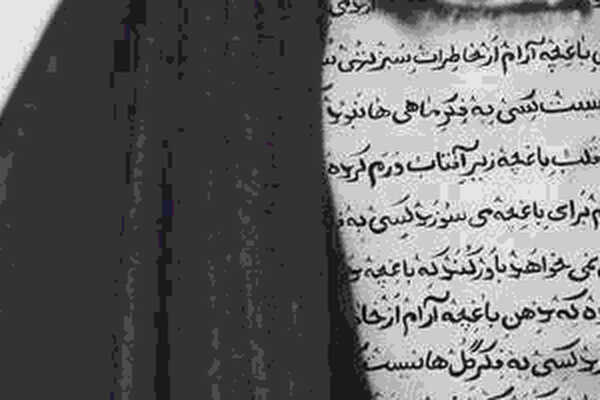 باغچه آرام از خاطرات سبز تهی
کسی به فکر ماهی ها
قلب باغچه زیر آفتاب ورم کرده
برای باغچه می سوزد کسی به
نمی خواهد باور کند که باغچه
که ذهن باغچه آرام از
کسی به فکر گل ها نیست